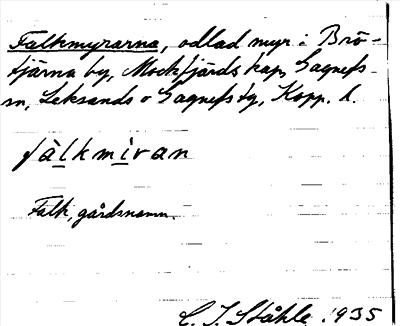 Falkmyrarna, odlad myr i Brö-
tjärna by, Mockfjärds kap, Gagnefs
sn, Leksands o Gagnefs tg, Kopp. l.
fàlkmiran
Falk, gårdsnamn.
C. I. Ståhle 1935